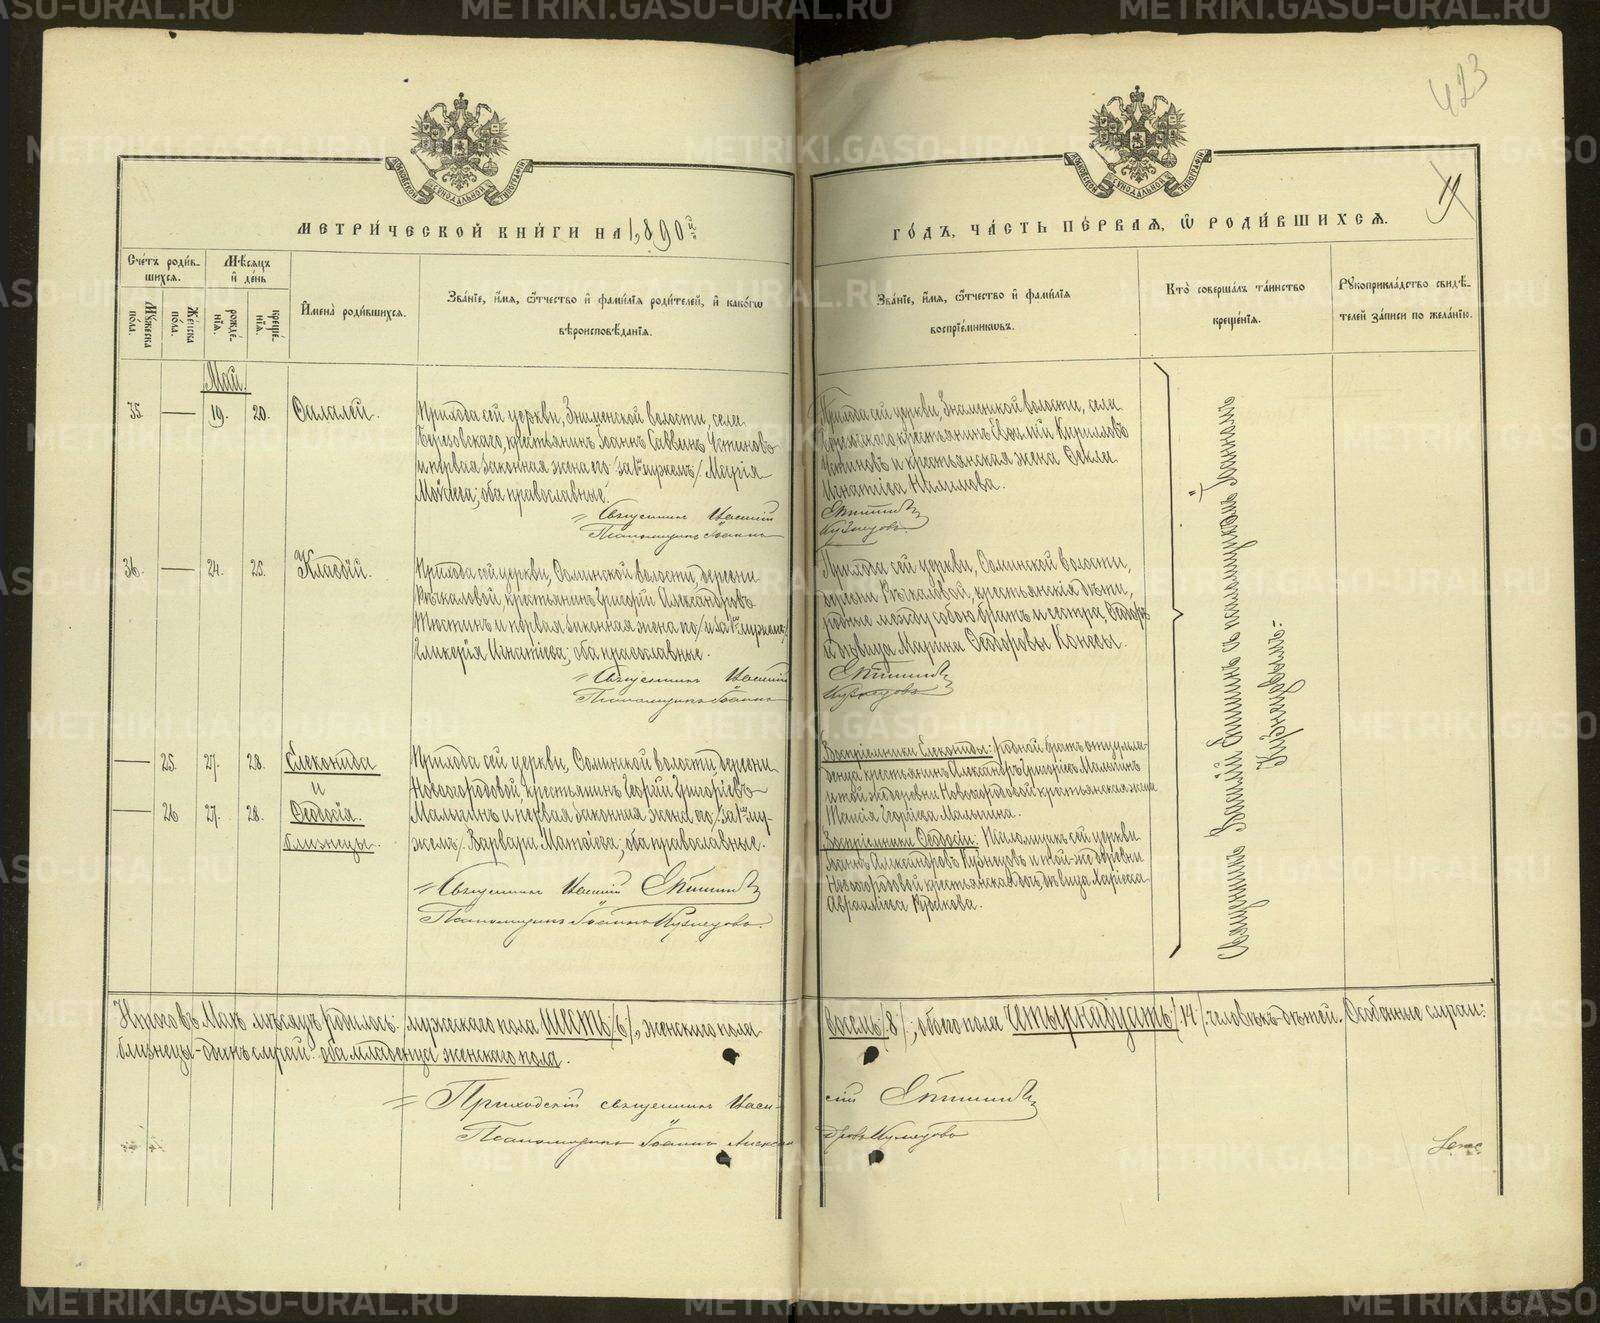 423
11
МЕТРИ́ЧЕСКОЙ КНИ́ГИ НА 1890й
ГО́ДЪ, ЧА́СТЬ ПЕ́РВАЯ, Ѡ РОДИ́ВШИХСЯ.
Сче́тъ роди́в-
шихся.
Мѣ́сяцъ
и҆ де́нь
Му́жеска
по́ла.
Же́нска
по́ла.
рожде́-
нїя.
креще́-
нїя.
И҆мена̀ роди́вшихся.
Зва́нїе, и҆́мя, ѻ҆́тчество и҆ фами́лїя роди́телей, и҆ како́гѡ
вѣроисповѣ́данїя.
Зва́нїе, и҆́мя, ѻ҆́тчество и҆ фами́лїя
воспрїе́мникѡвъ.
Кто̀ соверша́лъ та́инство
креще́нїя.
Рукоприкла́дство свидѣ́-
телей за́писи по жела́нїю.
Май.
35. — 19. 20. Фалалей.
Прихода сей церкви, Знаменской волости, села
Березовскаго, крестьянинъ Іоаннъ Саввинъ Устиновъ
и первая законная жена его /за 1мъ мужемъ/ Марія
Моѵсеева; оба православные.
= Священникъ Василій
Псаломщикъ Іоаннъ
Прихода сей церкви, Знаменской волости, села
крестьянинъ Евѳимій Кирилловъ
Устиновъ и крестьянская жена Ѳекла
Игнатіева Налимова.
Кузнецовъ
36. — 24. 25. Клавдій.
Прихода сей церкви, волости, деревни
крестьянинъ Григорій Александровъ
и первая законная жена его /и за 1мъ мужемъ/
Гликерія Игнатіева; оба православные.
= Священникъ Василій
Псаломщикъ Іоаннъ
Прихода сей церкви, волости,
деревни крестьянскія дѣти,
родные между собою братъ и сестра, Ѳеодоръ
и дѣвица Марина Ѳеодоровы
Кузнецовъ
— 25. 27. 28. Еликонида
и
— 26 27. 28. Ѳеодосія.
близнецы.
Прихода сей церкви, волости, деревни
Новогородовой, крестьянинъ Георгій Григоріевъ
Малыгинъ и первая законная жена его /за 1мъ му-
жемъ/ Варвара Матѳіева; оба православные.
= Священникъ Василій
Псаломщикъ Іоаннъ Кузнецовъ.
Воспріемники родной братъ отцу мла-
денца крестьянинъ Александръ Григоріевъ Малыгинъ
и той же деревни Новогородовой крестьянская жена
Таисія Егоріева Малыгина.
Воспріемники Ѳеодосіи: Псаломщикъ сей церкви
Іоаннъ Александровъ Кузнецовъ и той-же деревни
Новогородовой крестьянская дочь дѣвица Лариса
Авраамієва
Священникъ Василій съ псаломщикомъ Іоанномъ
Кузнецовымъ:
Итого въ Маѣ мѣсяцѣ родилось: мужескаго пола шесть /6/, женскаго пола
восемь /8/; обоего пола четырнадцать /14/ человѣкъ дѣтей. Особенные случаи:
близнецы - одинъ случай: оба младенца женскаго пола.
= Приходскій священникъ Васи-
лій
Псаломщикъ Іоаннъ Алексан-
дровъ Кузнецовъ
METRIKI.GASO-URAL.RU